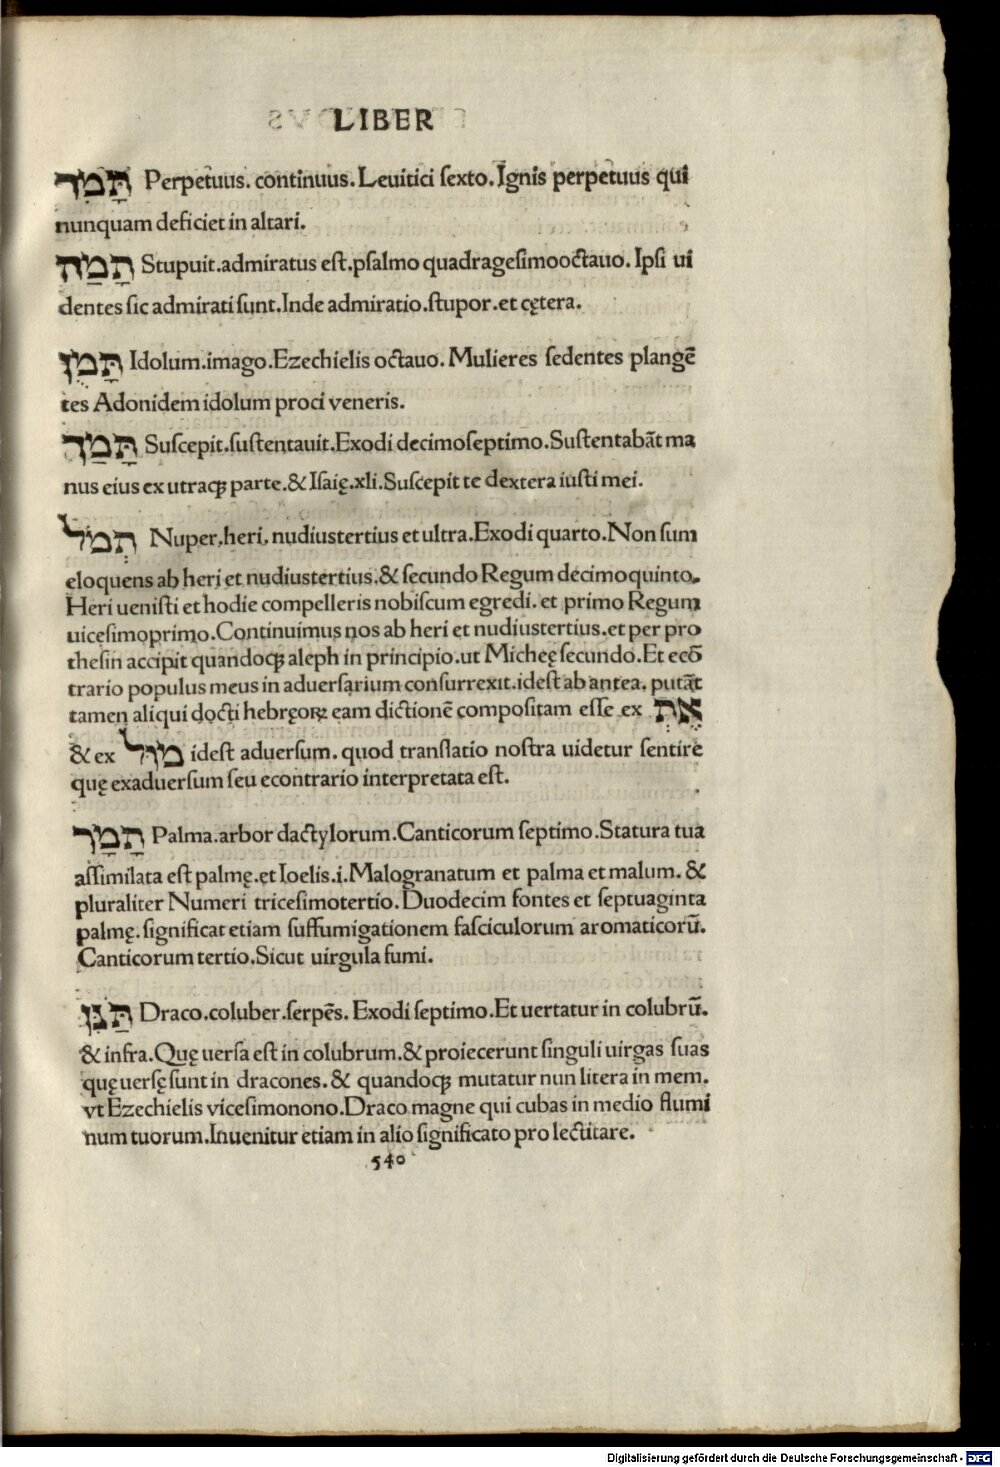 LIBER
תָּמִד Perpetuus. continuus. Leuitici sexto. Ignis perpetuus qui
nunquam deficiet in altari.
תָמַהּ Stupuit. admiratus est. psalmo quadragesimooctauo. Ipsi ui
dentes sic admirati sunt. Inde admiratio. stupor. et cętera.
תָּמֻז Idolum. imago. Ezechielis octauo. Mulieres sedentes plangē
tes Adonidem idolum proci veneris.
תָּמַךְ Suscepit. sustentauit. Exodi decimoseptimo. Sustentabāt ma
nus eius ex utraqꝫ parte. & Isaię. xli. Suscepit te dextera iusti mei.
תְמֹל Nuper, heri, nudiustertius et ultra. Exodi quarto. Non sum
eloquens ab heri et nudiustertius. & secundo Regum decimoquinto.
Heri uenisti et hodie compelleris nobiscum egredi. et primo Regum
uicesimoprimo. Continuimus nos ab heri et nudiustertius. et per pro
thesin accipit quandoqꝫ aleph in principio. ut Micheę secundo. Et ecō
trario populus meus in aduersarium consurrexit. idest ab antea. putāt
tamen aliqui docti hebręoꝝ eam dictionē compositam esse ex אֶתְ
& ex מוּל idest aduersum. quod translatio nostra uidetur sentire
quę exaduersum seu econtrario interpretata est.
תָמָר Palma. arbor dactylorum. Canticorum septimo. Statura tua
assimilata est palmę. et Ioelis. i. Malogranatum et palma et malum. &
pluraliter Numeri tricesimotertio. Duodecim fontes et septuaginta
palmę. significat etiam suffumigationem fasciculorum aromaticorū.
Canticorum tertio. Sicut uirgula fumi.
תַּנִּן Draco. coluber. serpēs. Exodi septimo. Et uertatur in colubrū.
& infra. Quę uersa est in colubrum. & proiecerunt singuli uirgas suas
quę uersę sunt in dracones. & quandoqꝫ mutatur nun litera in mem.
vt Ezechielis vicesimonono. Draco magne qui cubas in medio flumi
num tuorum. Inuenitur etiam in alio significato pro lectitare.
540
Digitalisierung gefördert durch die Deutsche Forschungsgemeinschaft - DFG